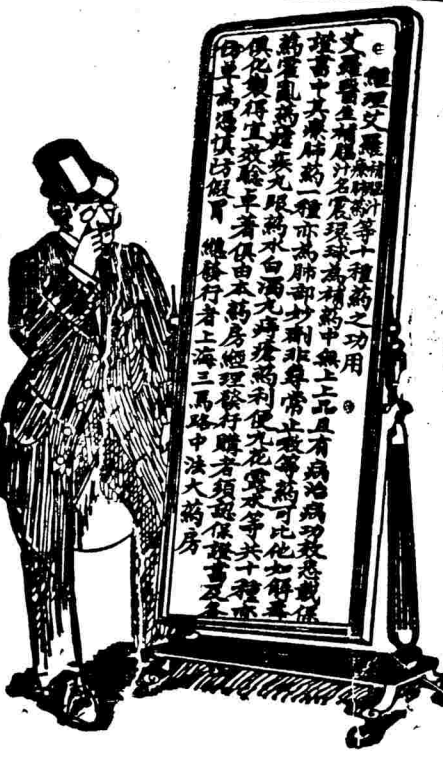 總理艾羅補腦汁療肺藥等十種藥之功用
艾羅醫生補腦汁名震環球為補藥中無上上品且有病治病功效悉載保
證書中其療肺藥一種亦為肺部妙劑非尋常止欬等藥可比他如解毒
藥霍亂藥瘧疾丸眼藥水白濁丸痔瘡藥利便丸花露水等共十種亦
俱化製得宜效驗卓著俱由本藥房總理發行購者須認保證書及各
仿單為憑慎防假冒 總發行者上海三馬路中法大藥房